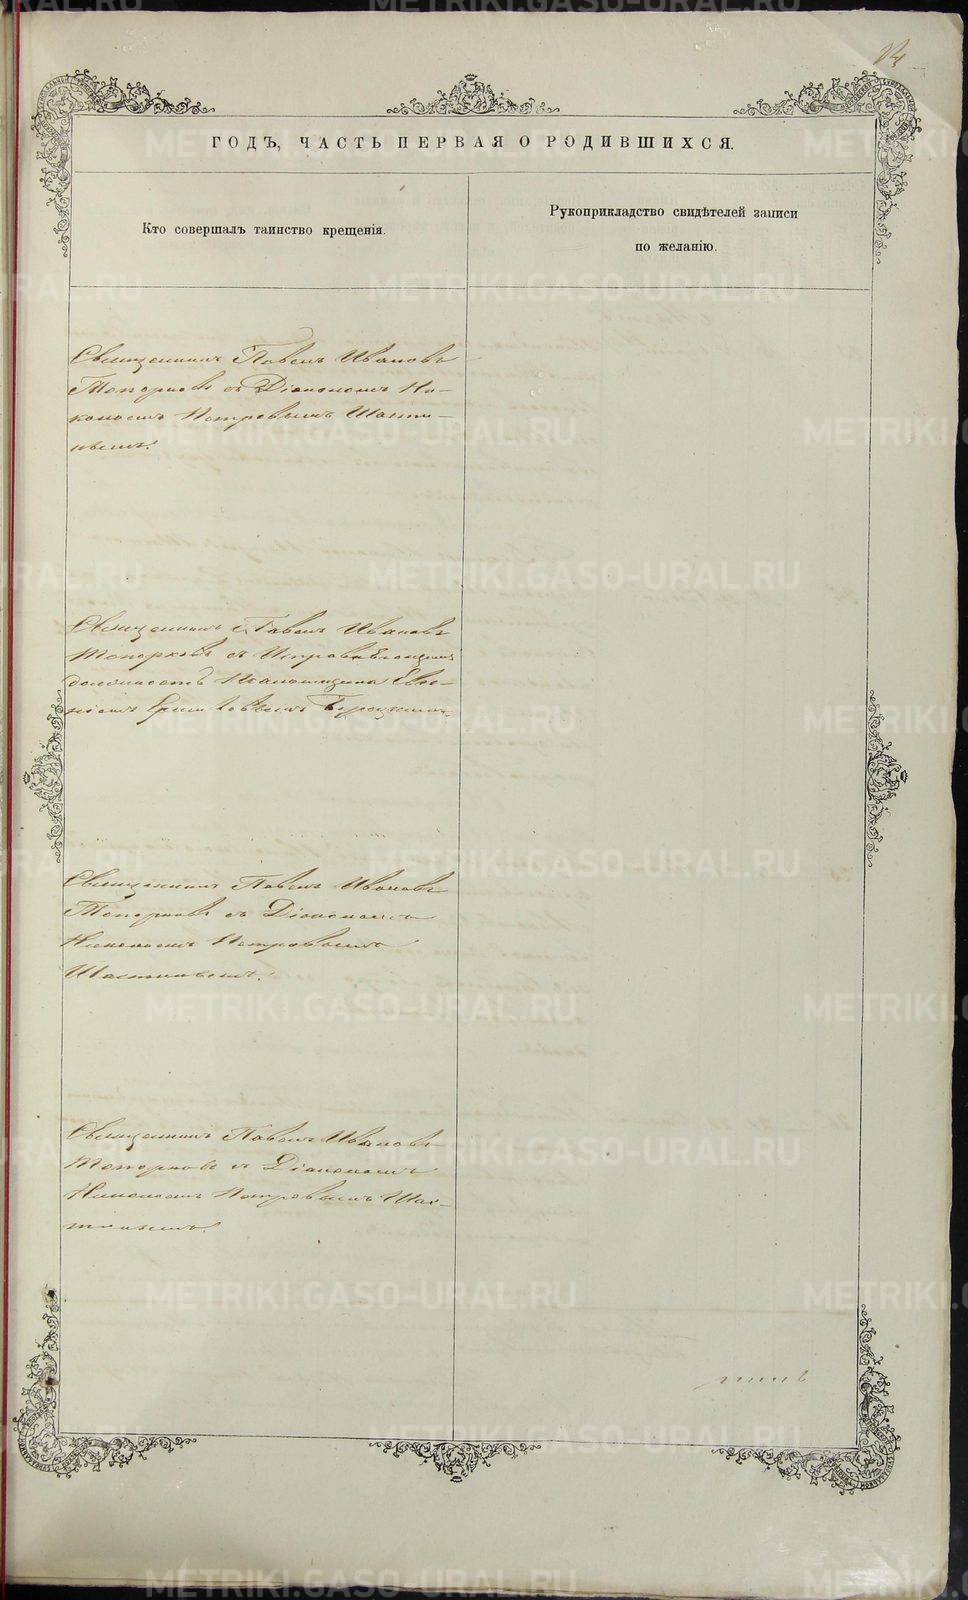 ГОДЪ, ЧАСТЬ ПЕРВАЯ О РОДИВШИХСЯ.
Кто совершалъ таинство крещенія.
Рукоприкладство свидѣтелей записи
по желанію.
Священникъ Павелъ Ивановъ
Топорковъ съ Діакономъ Ни-
колаемъ Петровымъ Шасти-
нымъ.
Священникъ Павелъ Ивановъ
Топорковъ съ Исправляющимъ
должность Псаломщика Евге-
ніемъ
Священникъ Павелъ Ивановъ
Топорковъ съ Діакономъ
Николаемъ Петровымъ
Шастинымъ.
Священникъ Павелъ Ивановъ
Топорковъ съ Діакономъ
Николаемъ Петровымъ Шас-
тинымъ.
METRIKI.GASO-URAL.RU